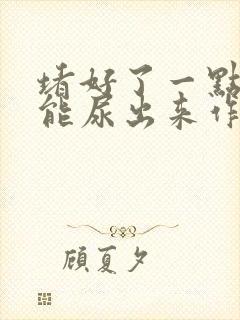 堵好了一點
能尿出来作
顾夏夕